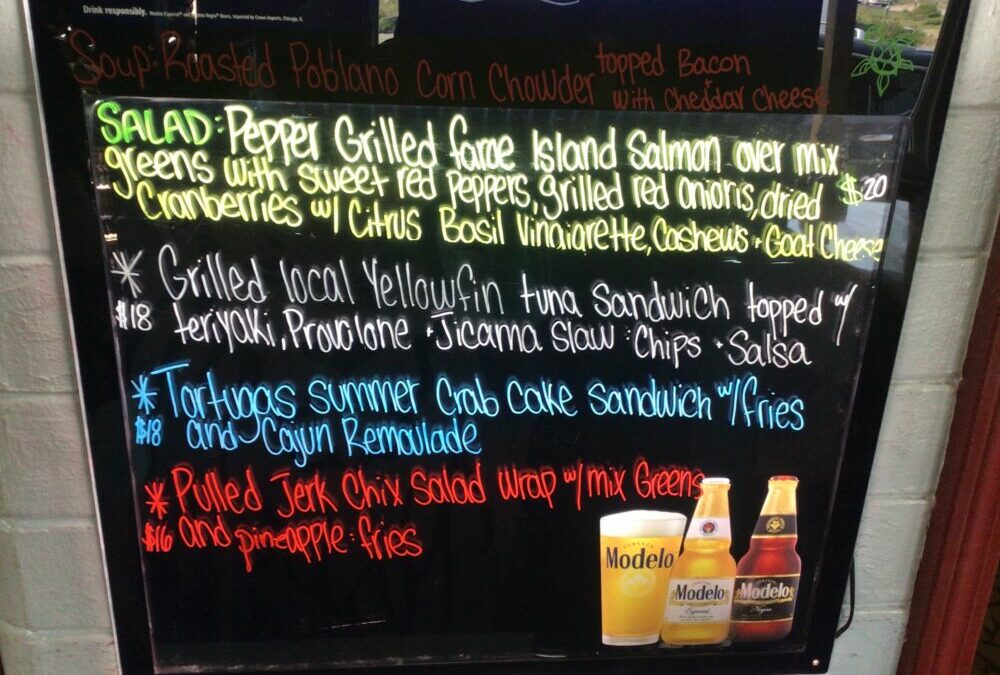 Drink responsibly. Modelo Especial® and Negra Modelo® Beers. Imported by Crown Imports, Chicago, IL
Soup: Roasted Poblano Corn Chowder topped Bacon +
with Cheddar Cheese
SALAD: Pepper Grilled faroe Island Salmon over mix
greens with sweet red peppers, grilled red onions, dried $20
Cranberries w/ Citrus Basil Vinaigrette, Cashews + Goat Cheese
* Grilled local Yellowfin tuna Sandwich topped w/
$18 teriyaki, Provolone + Jicama Slaw : Chips + Salsa
* Tortugas summer Crab Cake Sandwich w/ fries
$18 and Cajun Remoulade
* Pulled Jerk Chix Salad Wrap w/ mix Greens
$16 and pineapple : fries
Modelo
Modelo
Especial
Modelo
Negra